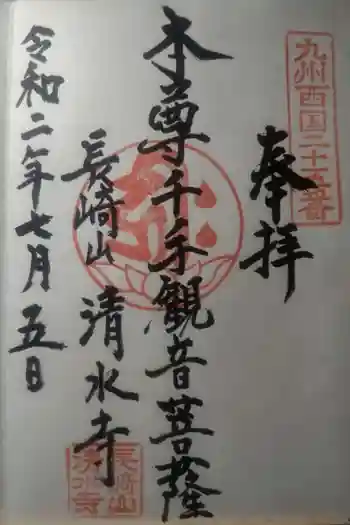 九州西国二十五番
奉拝
本尊千手観音菩薩
長崎山
清水寺
令和二年七月五日
長崎山
清水寺